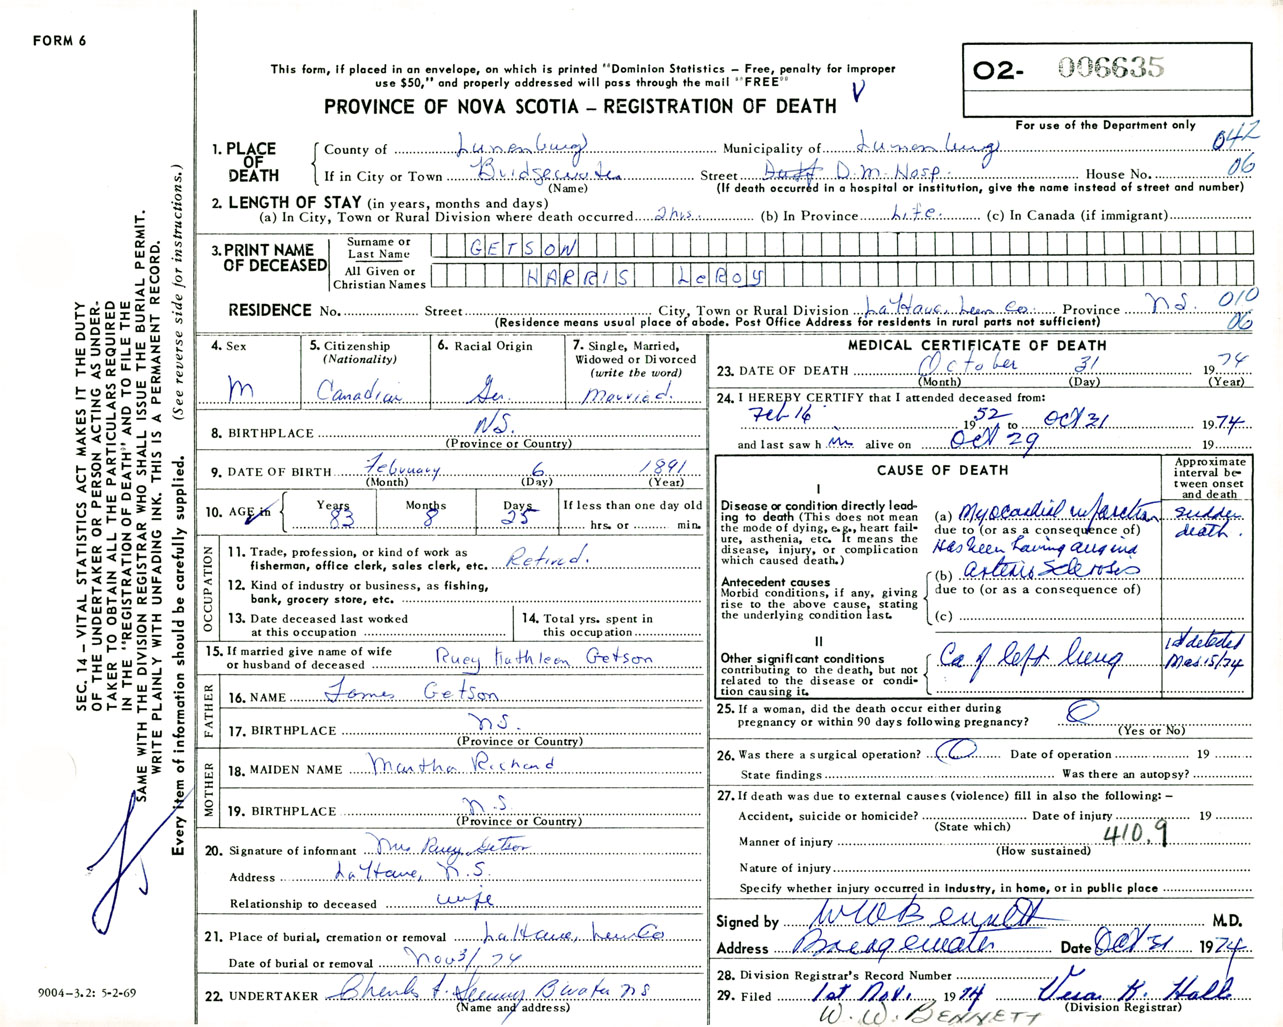 FORM 6
This form, if placed in an envelope, on which is printed "Dominion Statistics – Free, penalty for improper
use $50," and properly addressed will pass through the mail "FREE"
PROVINCE OF NOVA SCOTIA – REGISTRATION OF DEATH
02- 006635
For use of the Department only
042
06
1. PLACE OF DEATH
County of Lunenburg Municipality of Lunenburg
If in City or Town Bridgewater Street D.M. Hosp. House No.
(Name) (If death occurred in a hospital or institution, give the name instead of street and number)
2. LENGTH OF STAY (in years, months and days)
(a) In City, Town or Rural Division where death occurred 2 hrs. (b) In Province Life (c) In Canada (if immigrant)
3. PRINT NAME OF DECEASED
Surname or Last Name GETSON
All Given or Christian Names HARRIS LeROY
RESIDENCE No. Street City, Town or Rural Division LaHave, Lun Co. Province N.S. 010
06
(Residence means usual place of abode. Post Office Address for residents in rural parts not sufficient)
4. Sex
M
5. Citizenship
(Nationality)
Canadian
6. Racial Origin
Ger.
7. Single, Married,
Widowed or Divorced
(write the word)
Married.
8. BIRTHPLACE N.S.
(Province or Country)
9. DATE OF BIRTH February 6 1891
(Month) (Day) (Year)
10. AGE in
Years Months Days
83 8 25
If less than one day old
hrs. or min.
OCCUPATION
11. Trade, profession, or kind of work as
fisherman, office clerk, sales clerk, etc. Retired.
12. Kind of industry or business, as fishing,
bank, grocery store, etc.
13. Date deceased last worked
at this occupation
14. Total yrs. spent in
this occupation
15. If married give name of wife
or husband of deceased Ruey Kathleen Getson
FATHER
16. NAME James Getson
17. BIRTHPLACE N.S.
(Province or Country)
MOTHER
18. MAIDEN NAME Martha Richard
19. BIRTHPLACE N.S.
(Province or Country)
20. Signature of informant Mrs Ruey Getson
Address LaHave, N.S.
Relationship to deceased wife
21. Place of burial, cremation or removal LaHave, Lun Co
Date of burial or removal Nov 3/74
22. UNDERTAKER B'water NS
(Name and address)
MEDICAL CERTIFICATE OF DEATH
23. DATE OF DEATH October 31 1974
(Month) (Day) (Year)
24. I HEREBY CERTIFY that I attended deceased from:
Feb 16 1952 to Oct 31 1974
and last saw him alive on Oct 29 19
CAUSE OF DEATH
Approximate
interval be-
tween onset
and death
I
Disease or condition directly lead-
ing to death (This does not mean
the mode of dying, e.g., heart fail-
ure, asthenia, etc. It means the
disease, injury, or complication
which caused death.)
(a) Myocardial infarction sudden
death.
due to (or as a consequence of)
Has been having angina
Antecedent causes
Morbid conditions, if any, giving
rise to the above cause, stating
the underlying condition last.
(b) arterio sclerosis
due to (or as a consequence of)
(c)
II
Other significant conditions
contributing to the death, but not
related to the disease or condi-
tion causing it.
Ca of left lung
1st detected
Mar. 15/74
25. If a woman, did the death occur either during
pregnancy or within 90 days following pregnancy? O
(Yes or No)
26. Was there a surgical operation? O Date of operation 19
State findings Was there an autopsy?
27. If death was due to external causes (violence) fill in also the following: –
Accident, suicide or homicide? Date of injury 19
(State which)
Manner of injury 410.9
(How sustained)
Nature of injury
Specify whether injury occurred in industry, in home, or in public place
Signed by WW Bennett M.D.
Address Bridgewater Date Oct 31 1974
28. Division Registrar's Record Number
29. Filed 1st Nov. 1974 Vera K. Halle
(Division Registrar)
W. W. BENNETT
SEC. 14 – VITAL STATISTICS ACT MAKES IT THE DUTY
OF THE UNDERTAKER OR PERSON ACTING AS UNDER-
TAKER TO OBTAIN ALL THE PARTICULARS REQUIRED
IN THE "REGISTRATION OF DEATH" AND TO FILE THE
SAME WITH THE DIVISION REGISTRAR WHO SHALL ISSUE THE BURIAL PERMIT.
WRITE PLAINLY WITH UNFADING INK. THIS IS A PERMANENT RECORD.
Every item of information should be carefully supplied. (See reverse side for instructions.)
9004-3.2: 5-2-69